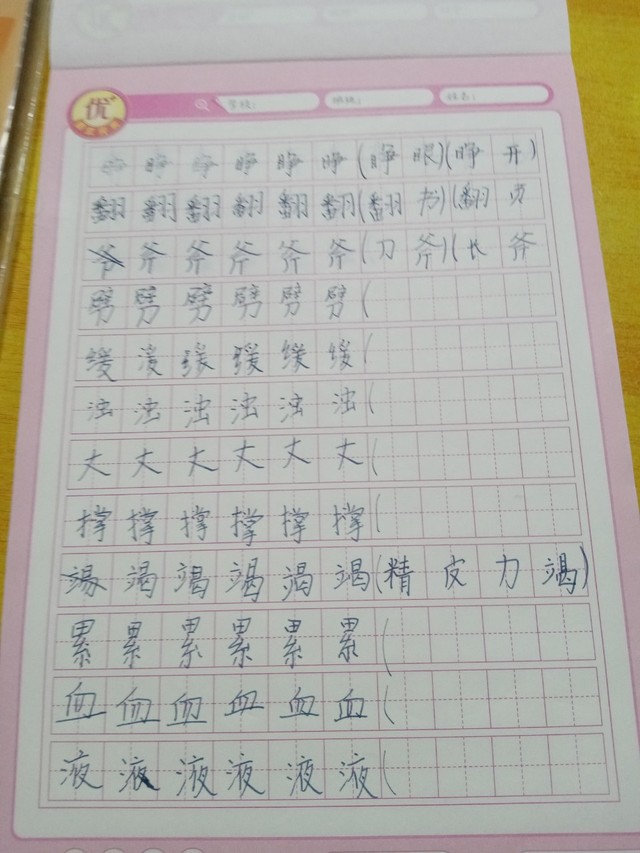 优
学校： 班级： 姓名：
睁 睁 睁 睁 睁 睁(睁 眼)(睁 开)
翻 翻 翻 翻 翻 翻(翻 书)(翻 页)
斧 斧 斧 斧 斧(刀 斧)(长 斧
劈 劈 劈 劈 劈 劈(
缓 缓 缓 缓 缓 缓(
浊 浊 浊 浊 浊 浊(
丈 丈 丈 丈 丈 丈(
撑 撑 撑 撑 撑 撑(
竭 竭 竭 竭 竭(精 皮 力 竭)
累 累 累 累 累 累(
血 血 血 血 血 血(
液 液 液 液 液 液(